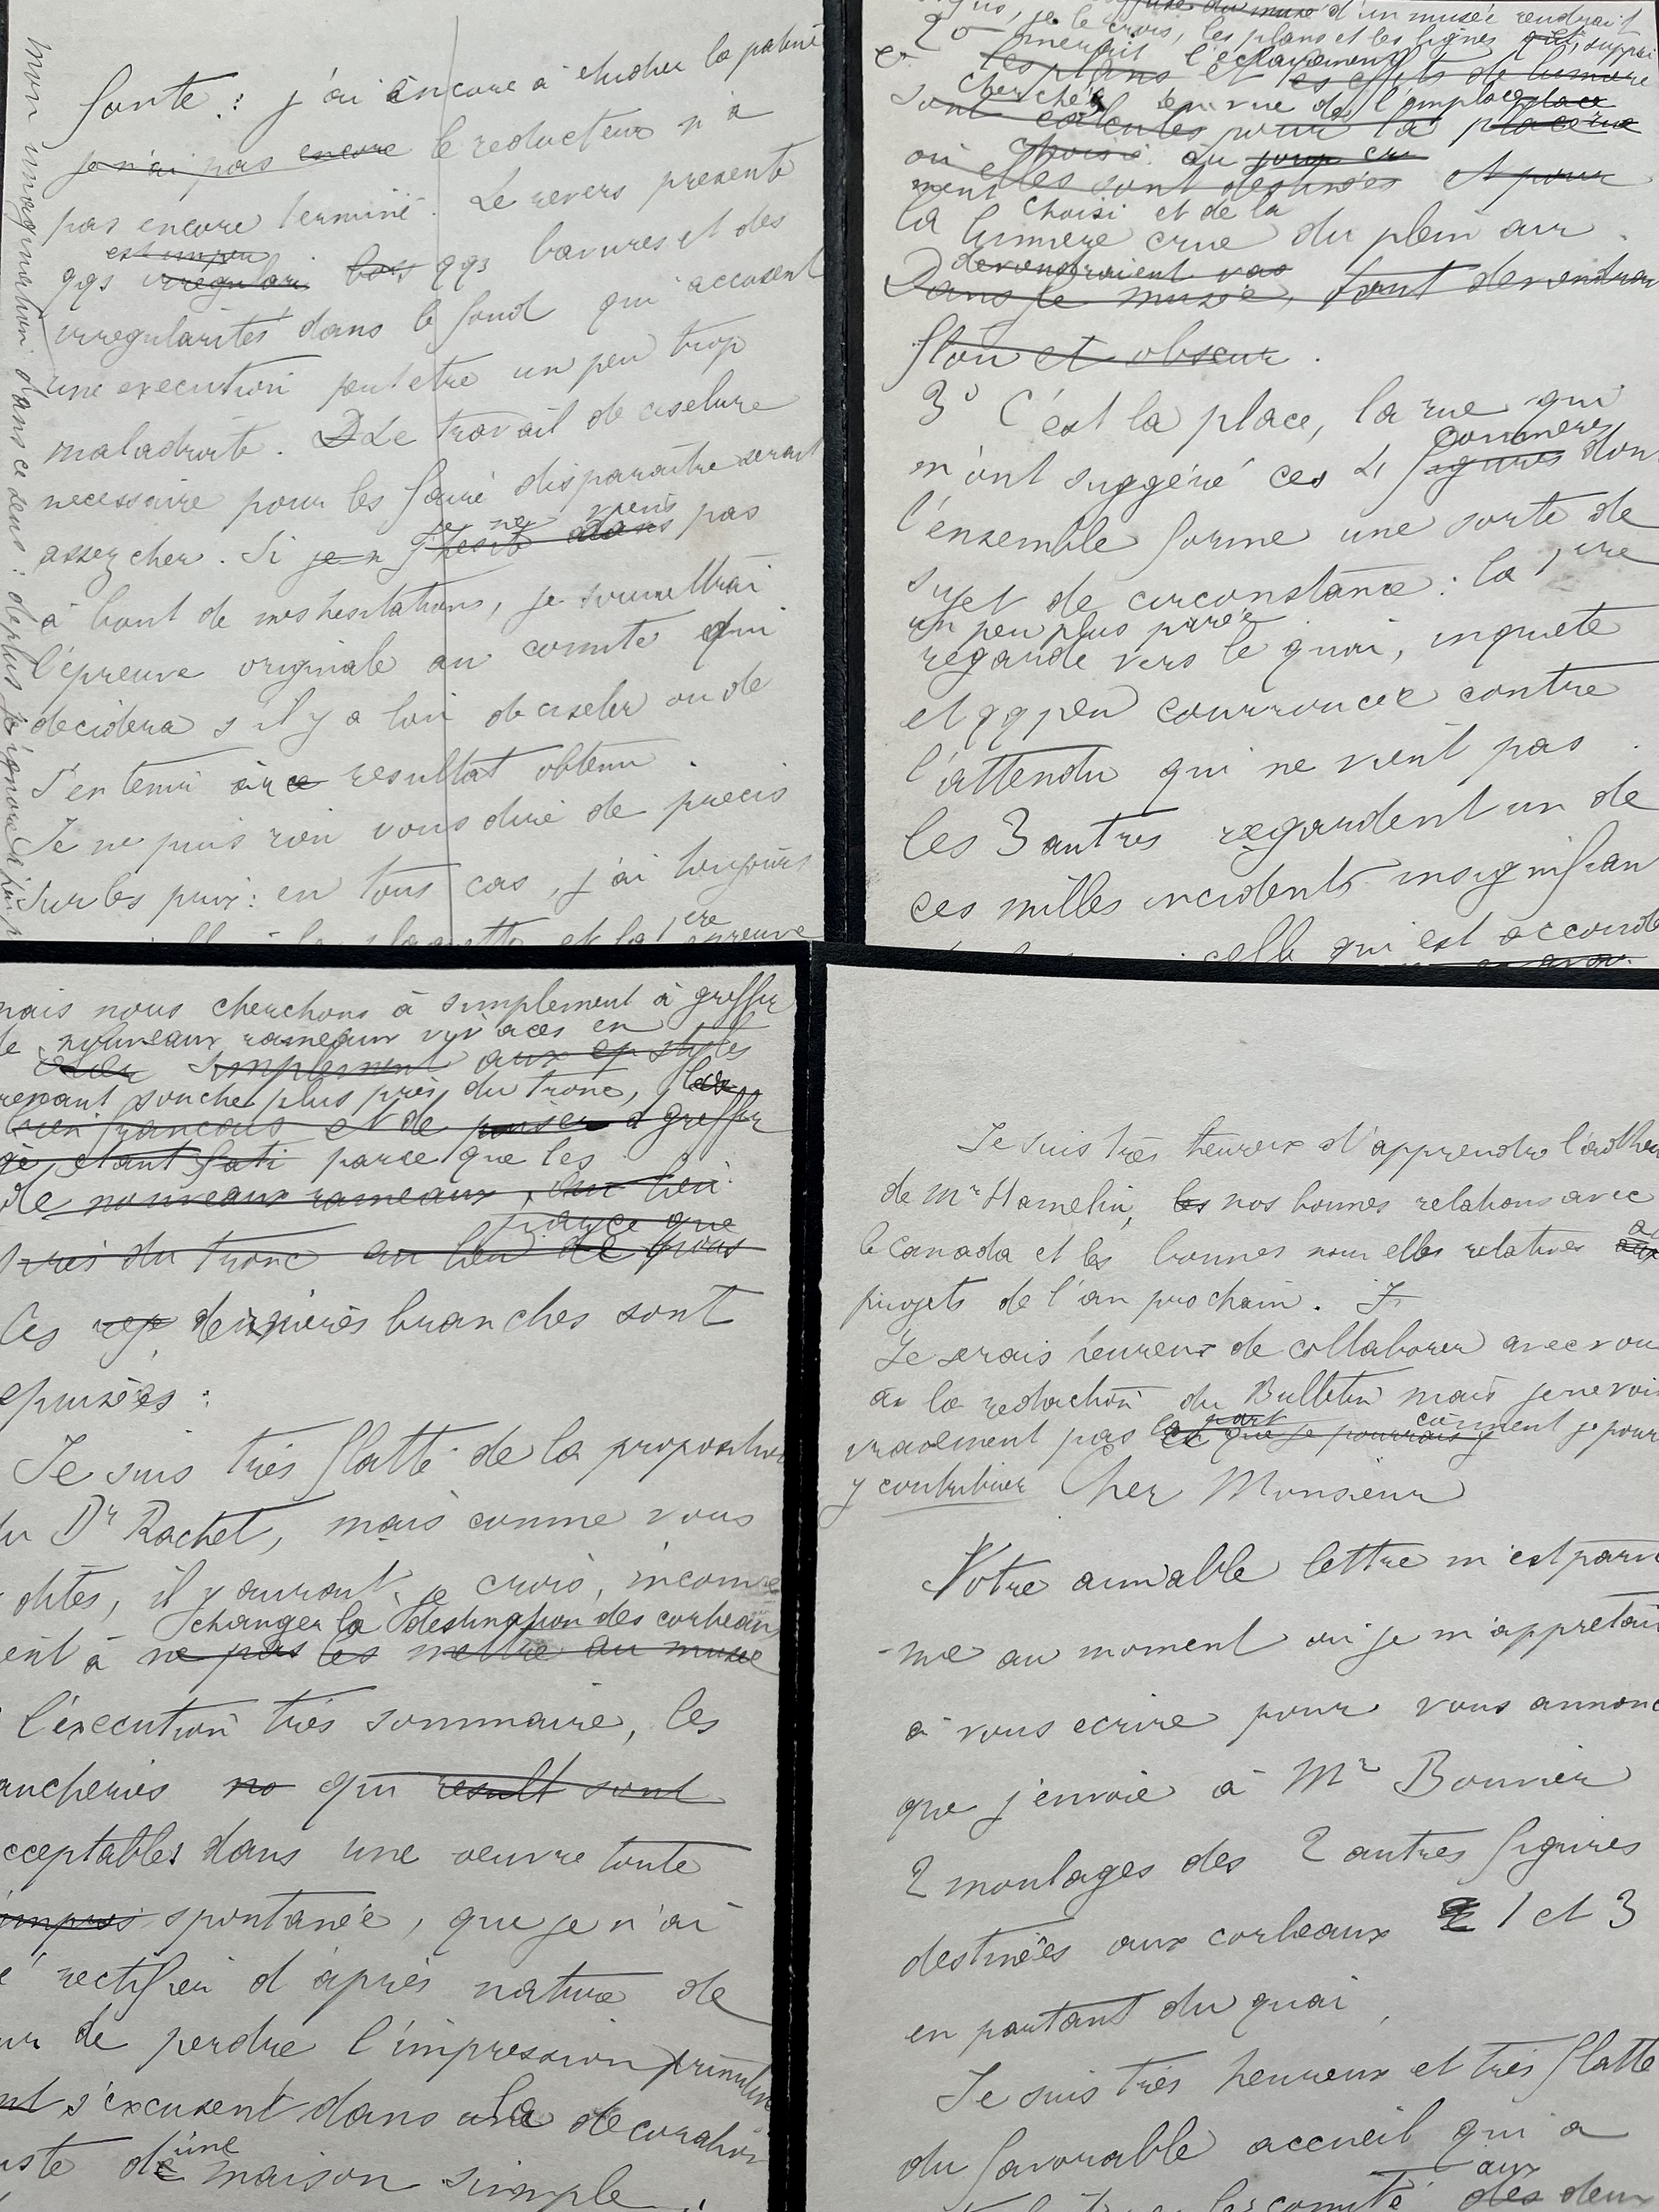 fonte : j'ai encore à etudier la patine
je n'ai pas encore le reducteur n'a
pas encore terminé. Le revers presente
est un peu
qqs irregulari bos qqs bavures et des
irregularités dans le fond qui accusent
une execution peut etre un peu trop
maladroite. Le travail de ciselure
necessaire pour les faire disparaitre serait
assez cher. Si je n je ne viens pas
à bout de mes hesitations, je soumettrai
l'épreuve originale au comite qui
decidera s'il y a lieu de ciseler ou de
s'en tenir au ce resultat obtenu.
Je ne puis rien vous dire de precis
sur les prix : en tous cas, j'ai toujours
la plaquette et la 1ere epreuve
mon imagination dans ce sens : de plus j'ignore
d'un musée rendrait
je le crois, les plans et les lignes suppri
2o merait l'éclairement
les plans et les effets de lumiere
cherchés en vue de l'emplace place
sont calculés pour la place rue
choisi du jour cru
où elles sont destinées et pour
ment choisi et de la
la lumiere crue du plein air.
deviendraient vas
Dans le musée, tout deviendrai
flou et obscur.
3o C'est la place, la rue qui
m'ont suggéré ces 4 figures don
commeres
l'ensemble forme une sorte de
sujet de circonstance : la 1ere
un peu plus parée
regarde vers le quai, inquiete
et qq peu courroucée contre
l'attendu qui ne vient pas.
les 3 autres regardent un de
ces milles incidents insignifian
celle qui est accoudé
mais nous cherchons à simplement à greffer
de nouveaux rameaux vivaces en
simplement aux styles
renant souche plus près du tronc,
bien francais et de puiser a greffer
parce que les
de nouveaux rameaux,
parce que
près du tronc au lieu de
Ces dernieres branches sont
epuisées :
Je suis très flatté de la propositio
du Dr Rachet, mais comme vous
dites, il y aurait, je crois, inconve
changer la destination des corbeau
ent à ne pas les mettre au musee
l'éxecution très sommaire, les
aucheries no qui result sont
cceptables dans une oeuvre toute
impres spontanée, que je n'ai
rectifier d'après nature de
ur de perdre l'impression primitive
nt s'excusent dans une decoration
uste d'une maison simple.
Je suis très heureux d'apprendre l'adhe
de Mr Hamelin, les nos bonnes relations avec
le Canada et les bonnes nouvelles relatives aux
projets de l'an prochain. J
Je serais heureux de collaborer avec vou
à la redaction du Bulletin mais je ne voi
vraiment pas la part ce que je pourrais y comment je pour
y contribuer Cher Monsieur
Votre aimable lettre m'est parve
nue au moment où je m'appretai
à vous ecrire pour vous annonc
que j'envoie à Mr Bouvier
2 moulages des 2 autres figures
destinées aux corbeaux 2 1 et 3
en partant du quai,
Je suis très heureux et très flatté
du favorable accueil qui a
le comité aux des deux